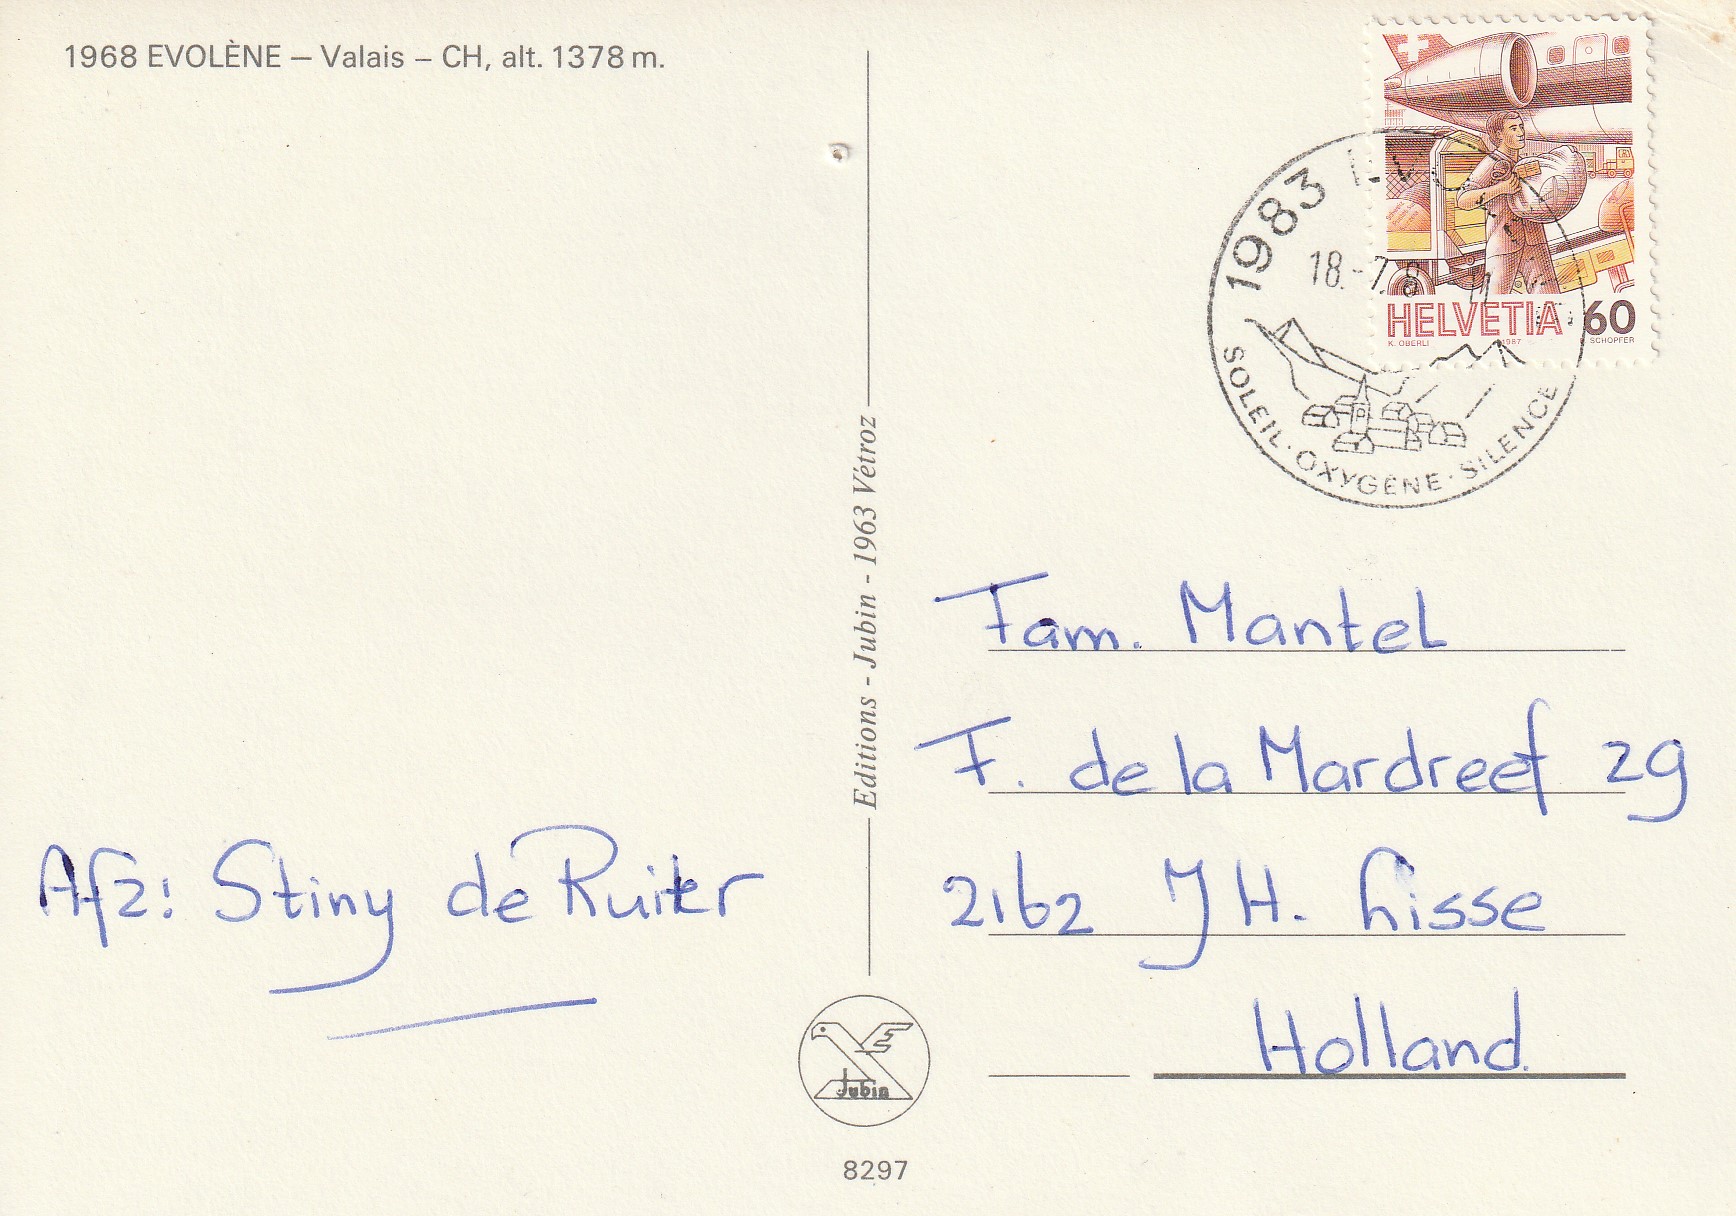 1968 EVOLÈNE – Valais – CH, alt. 1378 m.
Afz: Stiny de Ruiter
Editions - Jubin - 1963 Vétroz
Jubin
8297
HELVETIA 60
K. OBERLI 1987 SCHOPFER
1983
18.-7.8 -11
SOLEIL · OXYGÈNE · SILENCE
Fam. Mantel
F. de la Mardreef 29
2162 JH. Lisse
Holland.